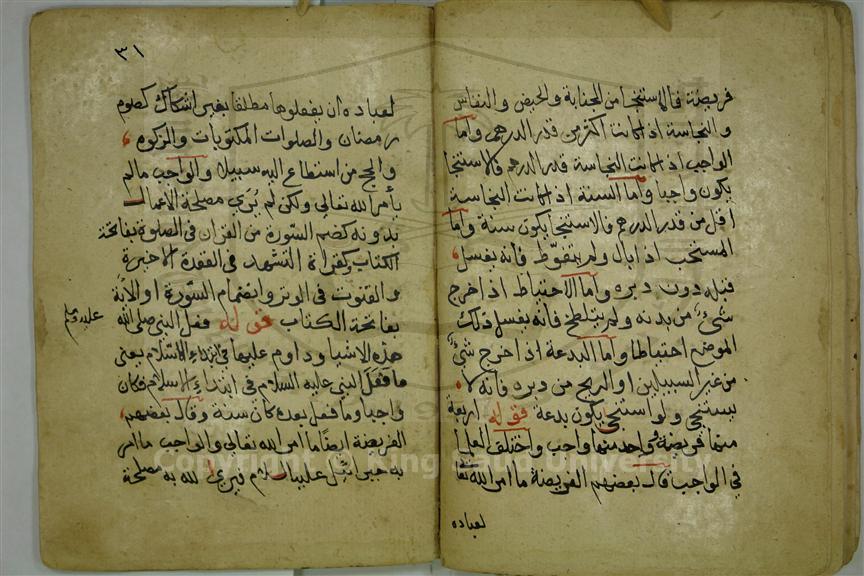 فريضة فالاستنجا من الجنابة والحيض والنفاس
والنجاسة اذا كانت اكثر من قدر الدرهم واما
الواجب اذا كانت النجاسة قدر الدرهم فالاستنجا
يكون واجبا واما السنة اذا كانت النجاسة
اقل من قدر الدرهم فالاستنجا يكون سنة واما
المستحب اذا بال ولم يتغوط فانه يغسل
قبله دون دبره واما الاحتياط اذا خرج
شئ من بدنه ولم يتلطخ فانه يغسل ذلك
الموضع احتياطا واما البدعة اذا خرج شئ
من غير السبيلين او الريح من دبره فانه لا
يستنجي ولو استنجي يكون بدعة قوله اربعة
منها فريضة وواحد منها واجب واختلف العلما
في الواجب قال بعضهم الفريضة ما امر الله تعا
لعباده
٣١
لعباده ان يفعلوها مطلقا بغير اشكال كصوم
رمضان والصلوات المكتوبات والزكوه
والحج من استطاع اليه سبيلا والواجب مالم
يأمر الله تعالي ولكن لم يري مصلحة الاعمال
بدونه كضم السورة من القران في الصلوة بفاتحة
الكتاب وكقراة التشهد في القعدة الاخيرة
والقنوت في الوتر وانضمام السورة او الاية
بفاتحة الكتاب قوله ففعل النبي صلي الله
عليه وسلم
هذه الاشيا وداوم عليها في ابتداء الاسلام يعني
ما فعل النبي عليه السلام في ابتداء الاسلام فكان
واجبا وما فعل بعده كان سنة وقال بعضهم
الفريضة ايضا ما امر الله تعالي والواجب ما امر
به جبرائيل عليه السلام الله به مصلحة